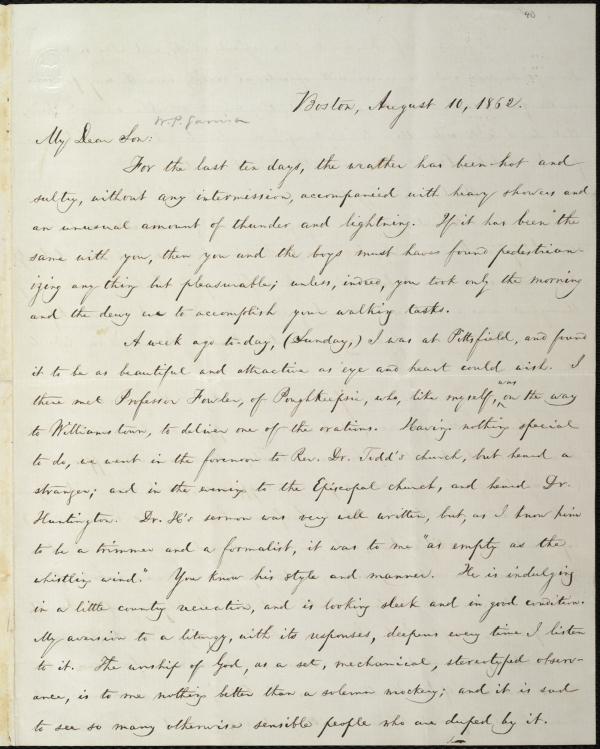 40
Boston, August 10, 1862.
W. P. Garrison
My Dear Son:
For the last ten days, the weather has been hot and
sultry, without any intermission, accompanied with heavy showers and
an unusual amount of thunder and lightning. If it has been the
same with you, then you and the boys must have found pedestrian-
izing any thing but pleasurable; unless, indeed, you took only the morning
and the dewy eve to accomplish your walking tasks.
A week ago to-day, (Sunday,) I was at Pittsfield, and found
it to be as beautiful and attractive as eye and heart could wish. I
there met Professor Fowler, of Poughkeepsie, who, like myself, was on the way
to Williamstown, to deliver one of the orations. Having nothing special
to do, we went in the forenoon to Rev. Dr. Todd's church, but heard a
stranger; and in the evening to the Episcopal church, and heard Dr.
Huntington. Dr. H's sermon was very well written, but, as I know him
to be a trimmer and a formalist, it was to me "as empty as the
whistling wind." You know his style and manner. He is indulging
in a little country recreation, and is looking sleek and in good condition.
My aversion to a liturgy, with its responses, deepens every time I listen
to it. The worship of God, as a set, mechanical, stereotyped observ-
ance, is to me nothing better than a solemn mockery; and it is sad
to see so many otherwise sensible people who are duped by it.